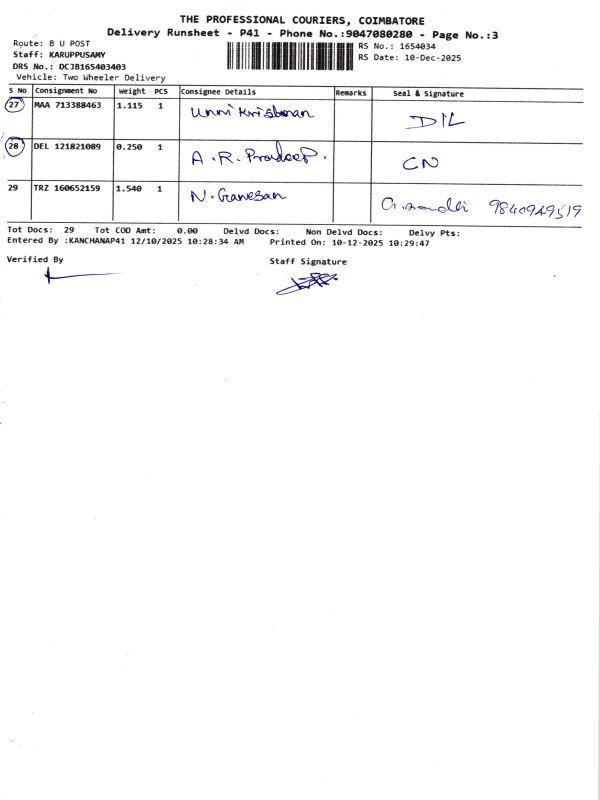 THE PROFESSIONAL COURIERS, COIMBATORE
Delivery Runsheet - P41 - Phone No.:9047080280 - Page No.:3
Route: B U POST
RS No.: 1654034
Staff: KARUPPUSAMY
RS Date: 10-Dec-2025
DRS No.: DCJB165403403
Vehicle: Two Wheeler Delivery
S No Consignment No Weight PCS Consignee Details Remarks Seal & Signature
27 MAA 713388463 1.115 1 Unni Krishnan DIL
28 DEL 121821089 0.250 1 A.R. Pradeep. CN
29 TRZ 160652159 1.540 1 N. Ganesan 9840949519
Tot Docs: 29 Tot COD Amt: 0.00 Delvd Docs: Non Delvd Docs: Delvy Pts:
Entered By :KANCHANAP41 12/10/2025 10:28:34 AM Printed On: 10-12-2025 10:29:47
Verified By
Staff Signature